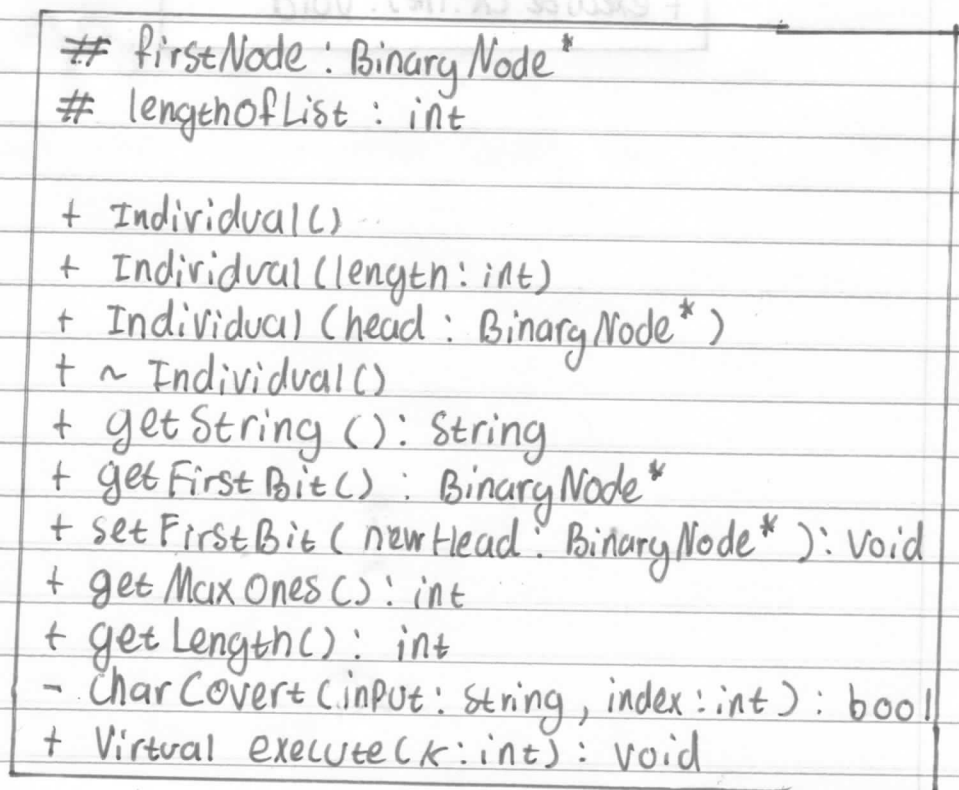 # firstNode : BinaryNode*
# lengthOfList : int
+ Individual()
+ Individual(length : int)
+ Individual (head : BinaryNode*)
+ ~ Individual()
+ getString () : String
+ getFirstBit() : BinaryNode*
+ setFirstBit ( newHead : BinaryNode* ) : void
+ getMaxOnes() : int
+ getLength() : int
- CharCovert (input : string, index : int) : bool
+ Virtual execute(k : int) : void